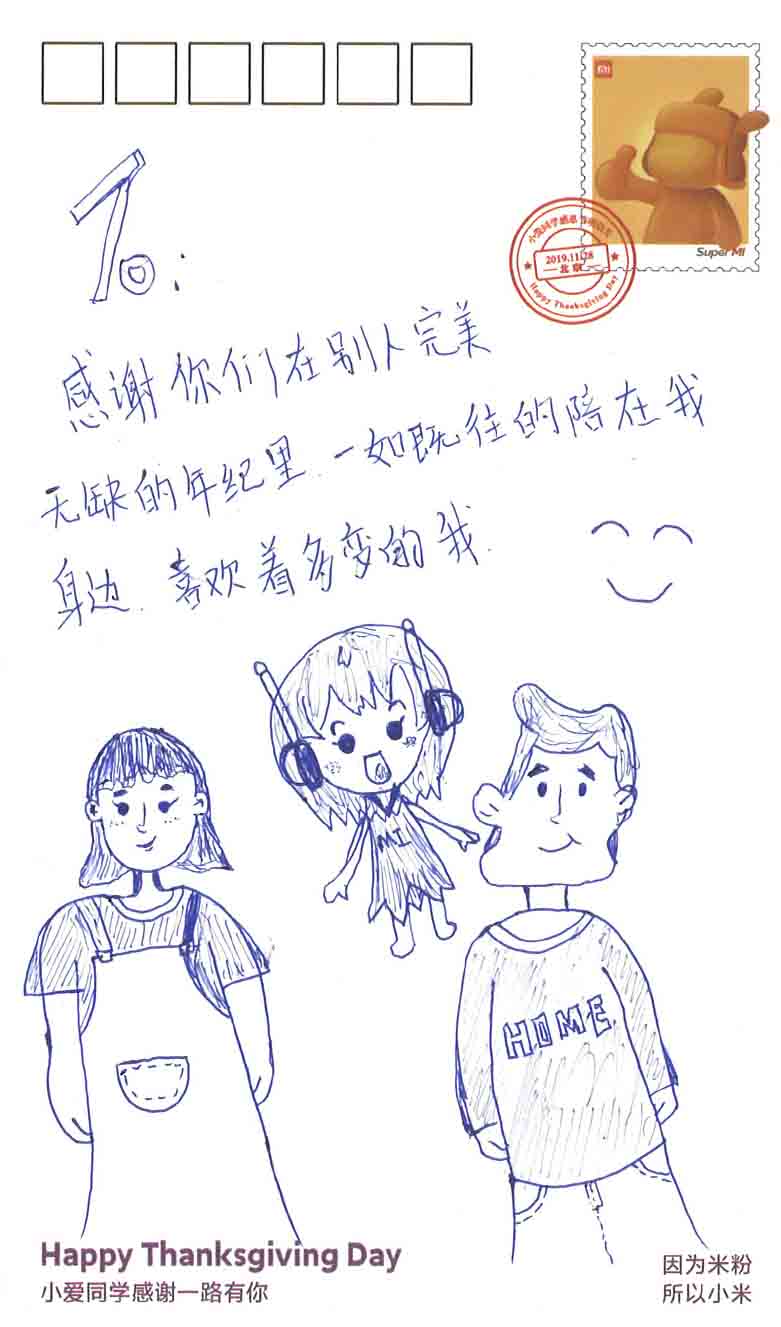 Super MI
小爱同学感恩
2019.11.28
北京
Happy Thanksgiving Day
To:
感谢你们在别人完美
无缺的年纪里.一如既往的陪在我
身边.喜欢着多变的我.
MI
HOME
Happy Thanksgiving Day
小爱同学感谢一路有你
因为米粉
所以小米